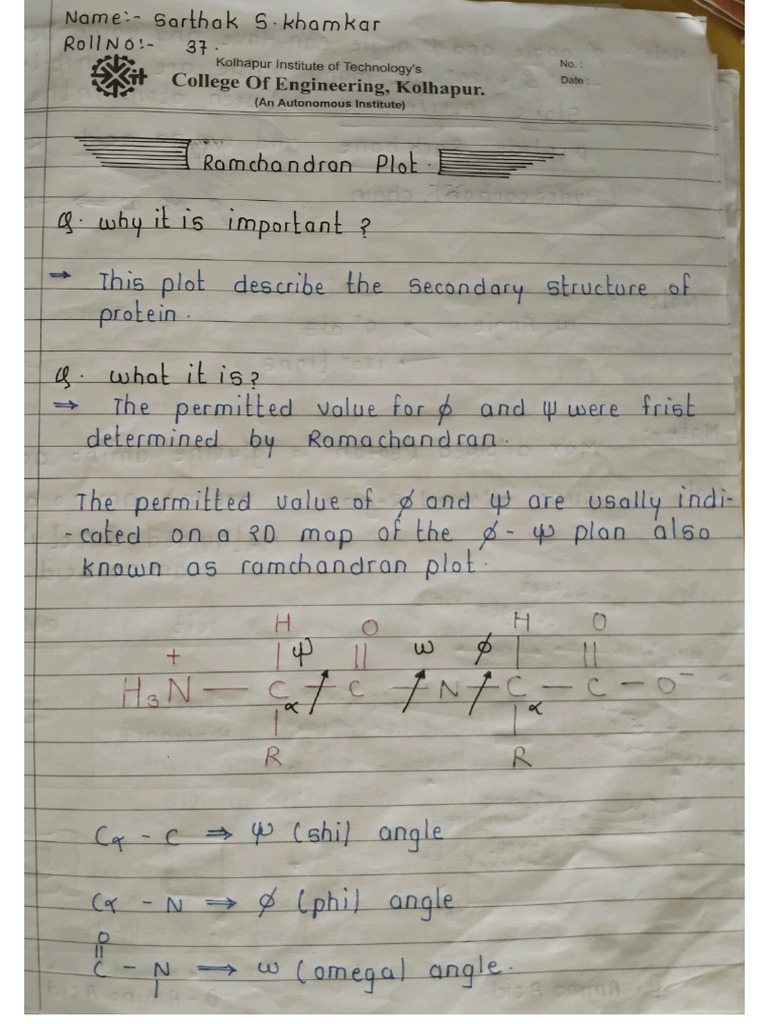 Name:- Sarthak S. khamkar
Roll NO:- 37.
Kolhapur Institute of Technology's
No. :
College Of Engineering, Kolhapur.
Date :
(An Autonomous Institute)
Ramchandran Plot.
Q. why it is important ?
⇒ This plot describe the secondary structure of
protein.
Q. what it is?
⇒ The permitted value for ϕ and ψ were frist
determined by Ramachandran.
The permitted value of ϕ and ψ are usally indi-
-cated on a 2D map of the ϕ - ψ plan also
known as ramchandran plot.
H O H O
+ | ψ || ω ϕ | ||
H3N — C — C — N — C — C — O⁻
α α
| |
R R
Cα - C ⇒ ψ (shi) angle
Cα - N ⇒ ϕ (phi) angle
O
||
C - N ⟹ ω (omega) angle.
|